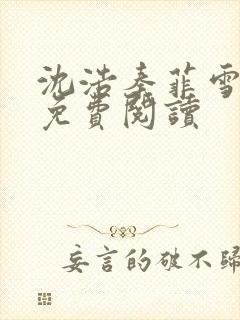 沈浩秦菲雪
免費閱讀
妄言的破不歸